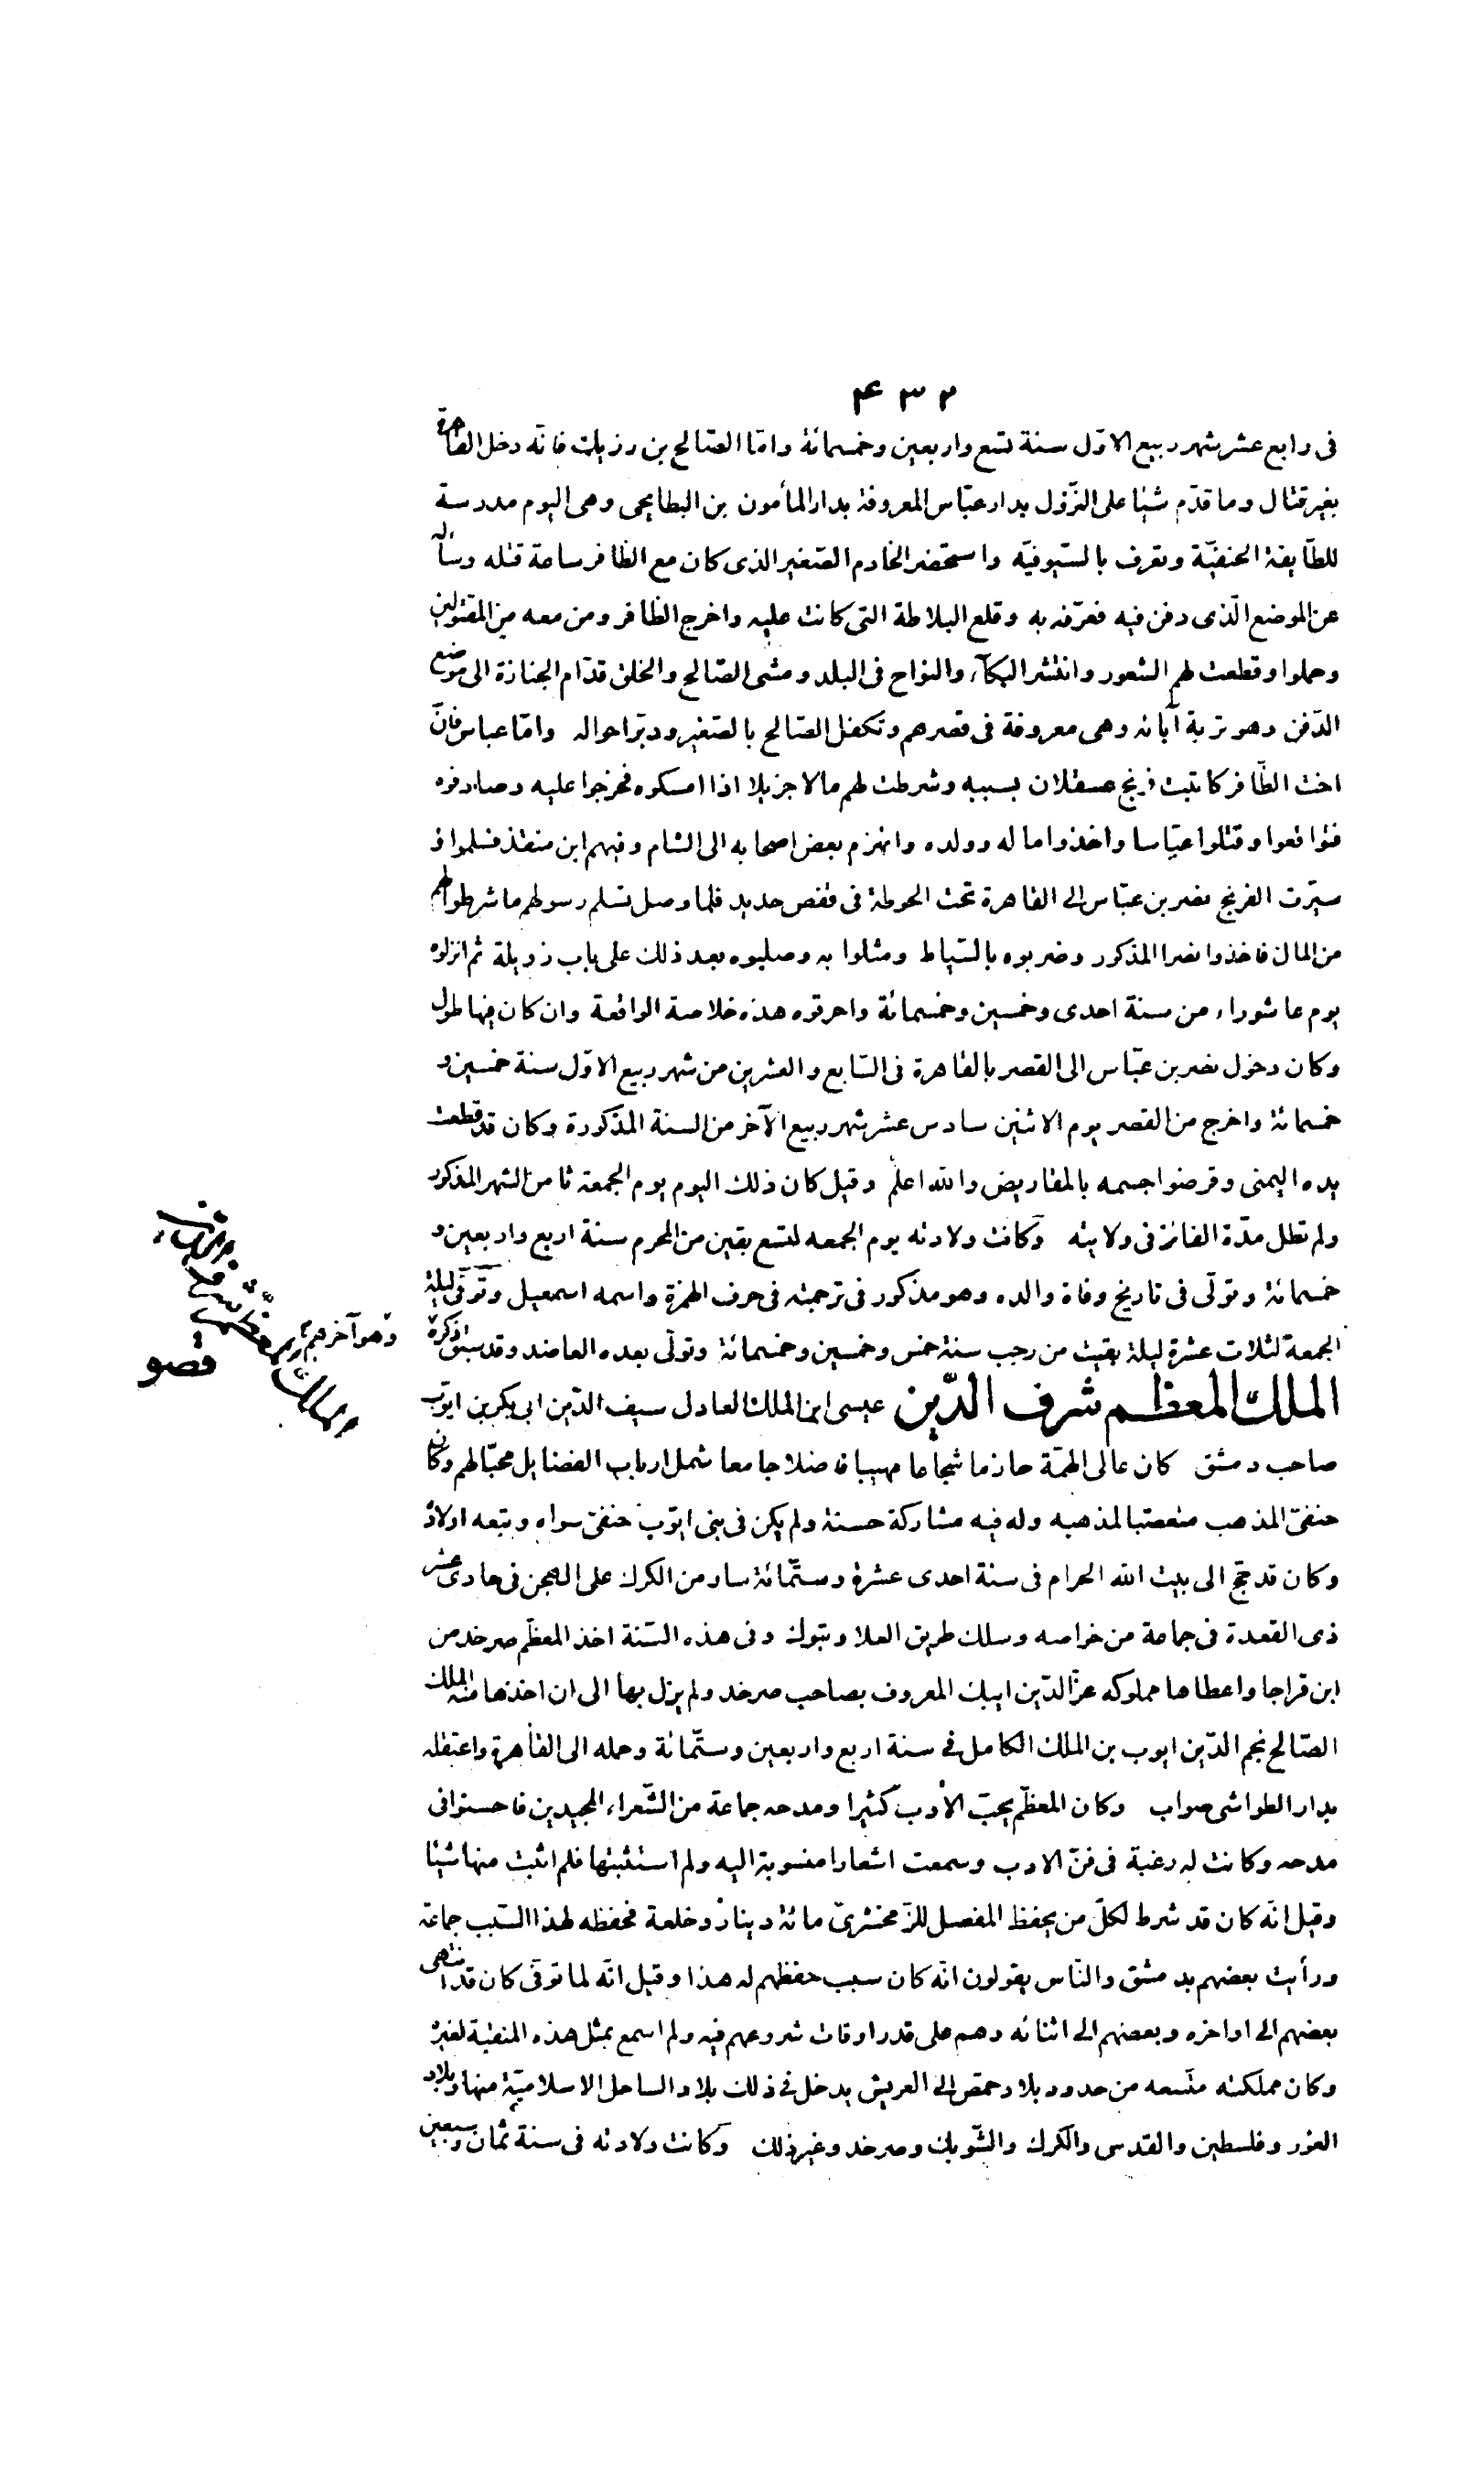 ۴۳۲
فى رابع عشر شهر ربيع الاوّل سنة تسع واربعين وخمسمائة وامّا الصّالح بن رزيك فانّه دخل القاهرة
بغير قتال وما قدّم شيئا على النّزول بدار عبّاس المعروفة بدار المأمون بن البطايحى وهى اليوم مدرسة
للطّايفة الحنفيّة وتعرف بالسّيوفيّه واستحضر الخادم الصّغير الذى كان مع الظافر ساعة قتله وسأله
عن الموضع الّذى دفن فيه فعرّفه به وقلع البلاطة التى كانت عليه واخرج الظافر ومن معه من المقتولين
وحملوا وقطعت لهم الشعور وانتشر البكآء والنواح فى البلد ومشى الصّالح والخلق قدّام الجنازة الى موضع
الدّفن وهو تربة آبائه وهى معروفة فى قصرهم وتكفل الصّالح بالصّغير ودبّر احواله وامّا عباس فانّ
اخت الظّافر كاتبت فرنج عسقلان بسببه وشرطت لهم مالا جزيلا اذا امسكوه فخرجوا عليه وصادفوه
فتواقعوا وقتلوا عبّاسا واخذوا ماله وولده وانهزم بعض اصحابه الى الشام وفيهم ابن منقذ فسلموا و
سيّرت الفرنج نصر بن عبّاس الى القاهرة تحت الحوطة فى قفص حديد فلما وصل تسلم رسولهم ما شرطوا لهم
من المال فاخذوا نصرا المذكور وضربوه بالسّياط ومثلوا به وصلبوه بعد ذلك على باب زويلة ثم انزلوه
يوم عاشوراء من سنة احدى وخمسين وخمسمائة واحرقوه هذه خلاصة الواقعة وان كان فيها طول
وكان دخول نصر بن عبّاس الى القصر بالقاهرة فى السّابع والعشرين من شهر ربيع الاوّل سنة خمسين و
خمسمائة واخرج من القصر يوم الاثنين سادس عشر شهر ربيع الآخر من السنة المذكورة وكان قد قطعت
يده اليمنى وقرضوا جسمه بالمقاريض والله اعلم وقيل كان ذلك اليوم يوم الجمعة ثامن الشهر المذكور
ولم تطل مدّة الفائز فى ولايته وكانت ولادته يوم الجمعه لتسع بقين من المحرم سنة اربع واربعين و
خمسمائة وتولّى فى تاريخ وفاة والده وهو مذكور فى ترجمته فى حرف الهمزة واسمه اسمعيل وتوّفّى ليلة
الجمعة لثلاث عشرة ليلة بقيت من رجب سنة خمس وخمسين وخمسمائة وتولّى بعده العاضد وقد سبق ذكره
وهو آخرهم
الملك المعظم شرف الدّين عيسى ابن الملك العادل سيف الدّين ابى بكر بن ايوّب
صاحب دمشق كان عالى الهمّة حازما شجاعا مهيبا فاضلا جامعا شمل ارباب الفضايل محبّا لهم وكان
حنفىّ المذهب متعصّبا لمذهبه وله فيه مشاركة حسنة ولم يكن فى بنى ايّوب حنفىّ سواه وتبعه اولاده
وكان قد حجّ الى بيت الله الحرام فى سنة احدى عشرة وستّمائة سار من الكرك على الهجن فى حادى عشر
ذى القعدة فى جماعة من خواصه وسلك طريق العلا وتبوك وفى هذه السّنة اخذ المعظّم صرخد من
ابن قراجا واعطاها مملوكه عزّ الدّين ايبك المعروف بصاحب صرخد ولم يزل بها الى ان اخذها منه الملك
الصّالح نجم الدّين ايوب بن الملك الكامل فى سنة اربع واربعين وستّمائة وحمله الى القاهرة واعتقله
بدار الطواشى صواب وكان المعظّم يحبّ الأدب كثيرا ومدحه جماعة من الشّعراء المجيدين فاحسنوا فى
مدحه وكانت له رغبة فى فنّ الادب وسمعت اشعارا منسوبة اليه ولم استثبتها فلم اثبت منها شيئا
وقيل انّه كان قد شرط لكلّ من يحفظ المفصل للزّمخشرىّ مائة دينار وخلعة فحفظه لهذا السّبب جماعة
ورأيت بعضهم بدمشق والنّاس يقولون انّه كان سبب حفظهم له هذا وقيل انّه لما توفّى كان قد انتهى
بعضهم الى اواخره وبعضهم الى اثنائه وهم على قدر اوقات شروعهم فيه ولم اسمع بمثل هذه المنقبة لغيره
وكان مملكته متّسعه من حدود بلاد حمص الى العريش يدخل فى ذلك بلاد الساحل الاسلاميّة منها وبلاد
الغور وفلسطين والقدس والكرك والشّوبك وصرخد وغير ذلك وكانت ولادته فى سنة ثمان وسبعين